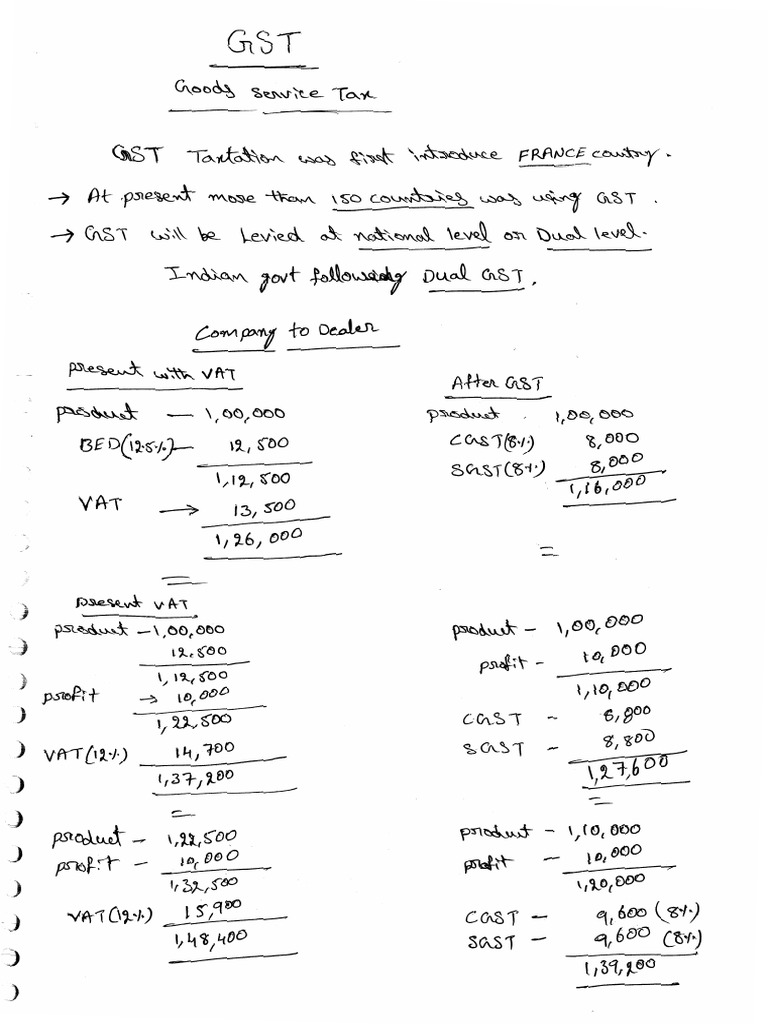 GST
Goods Service Tax
GST Taxtation was first introduce FRANCE country.
→ At present more than 150 countries was using GST.
→ GST will be Levied at national level or Dual level.
Indian govt following Dual GST.
Company to Dealer
present with VAT
product — 1,00,000
BED(12.5%) — 12,500
1,12,500
VAT → 13,500
1,26,000
=
After GST
product . 1,00,000
CGST(8%) 8,000
SGST(8%) 8,000
1,16,000
=
present VAT
product - 1,00,000
12,500
1,12,500
profit → 10,000
1,22,500
VAT(12%) 14,700
1,37,200
=
product - 1,00,000
profit - 10,000
1,10,000
CGST - 8,800
SGST - 8,800
1,27,600
=
product - 1,22,500
profit - 10,000
1,32,500
VAT(12%) 15,900
1,48,400
product - 1,10,000
profit - 10,000
1,20,000
CGST - 9,600 (8%)
SGST - 9,600 (8%)
1,39,200